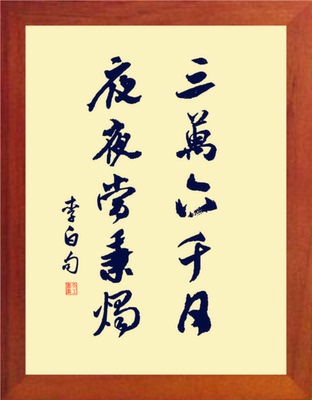 三萬六千日
夜夜當秉燭
李白句